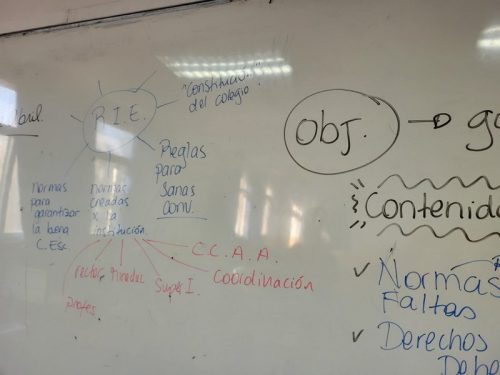 R.I.E.
"Constitución"
del colegio
Reglas
para
Sanas
Conv.
Normas
para
garantizar
la bena
C. Esc
normas
creadas
x la
institución
C.C.A.A.
Coordinación
Super I.
rector
profes
Obj.
Contenid
Normas
Faltas
Derechos
Debe